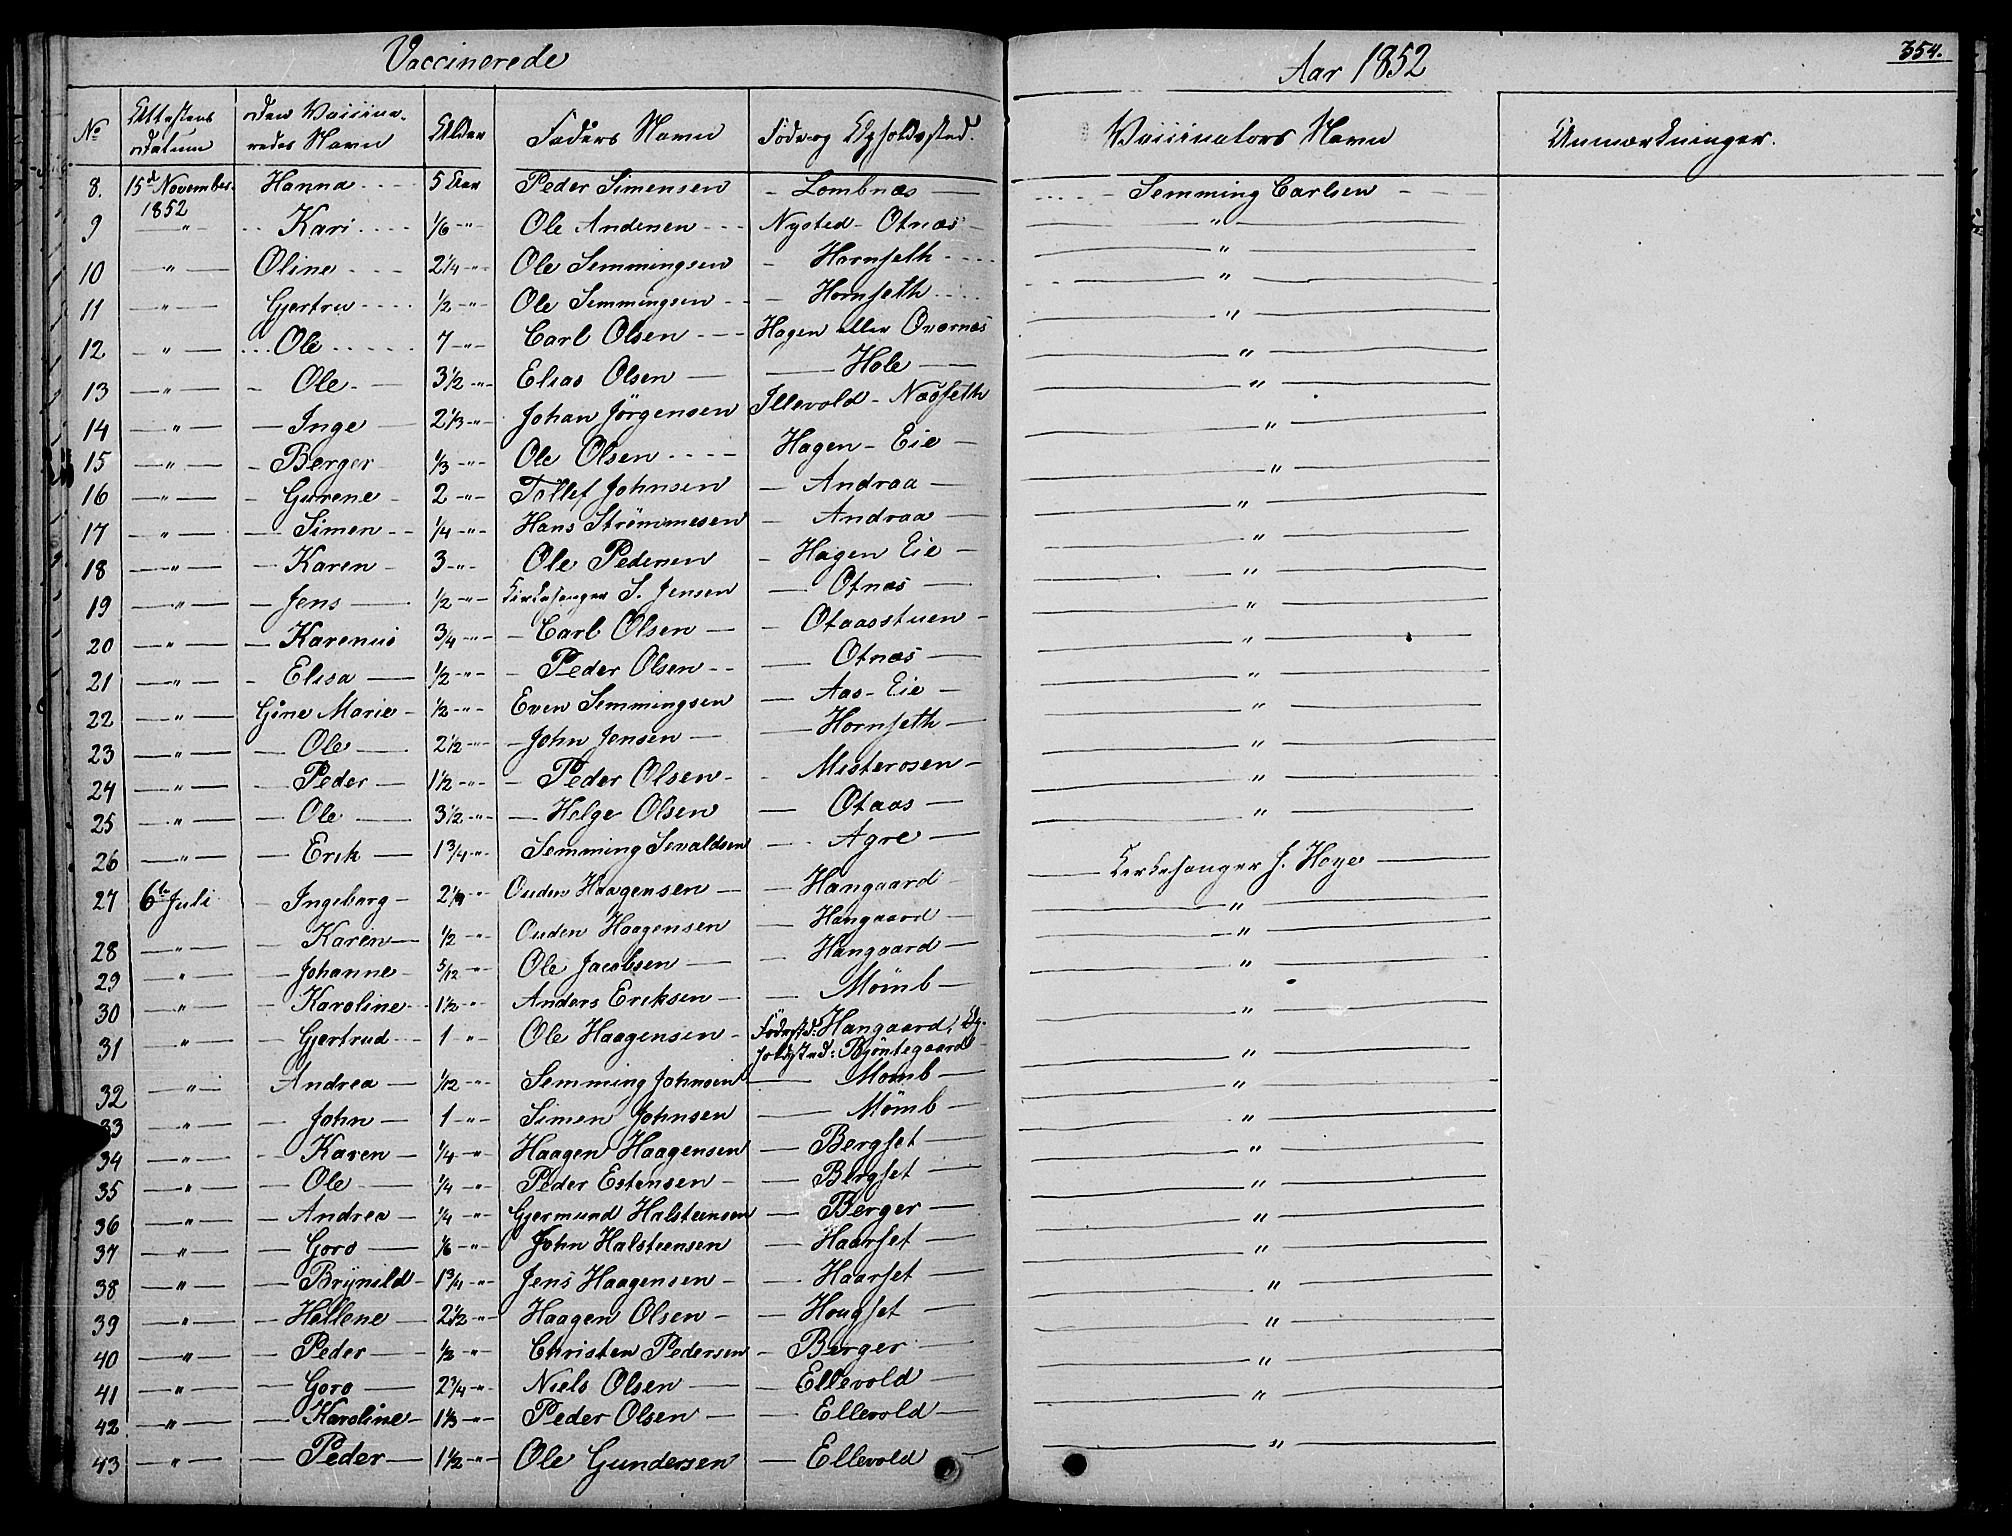 Vaccinerede
Aar 1852
354.
No Attestens Datum den Vaccineredes Navn Alder Faders Navn Føde og Opholdssted. Vaccinators Navn Anmærkninger.
8. 15d November 1852 Hanna 5 Aar Peder Simensen Lombnæs Semming Carlsen
9 " Kari 1/6 " Ole Andersen Nysted - Otnæs "
10 " Oline 2 1/4 " Ole Semmingsen Hornseth "
11 " Gjertru 1/2 " Ole Semmingsen Hornseth "
12 " Ole 7 " Carl Olsen Hagen eller Overnæs "
13 " Ole 3 1/2 " Elias Olsen Hole "
14 " Inge 2 1/3 " Johan Jörgensen Illevold - Næsseth "
15 " Berger 1/3 " Ole Olsen Hagen - Eie "
16 " Gurene 2 " Tollef Johnsen Andraa "
17 " Simen 1/4 " Hans Strömmesen Andraa "
18 " Karen 3 " Ole Pedersen Hagen Eie "
19 " Jens 1/2 " Kirkesanger S. Jensen Otnæs "
20 " Karenus 3/4 " Carl Olsen Otaasstuen "
21 " Elisa 1/2 " Peder Olsen Otnæs "
22 " Gine Marie 1/2 " Even Semmingsen Aas - Eie "
23 " Ole 2 1/2 " John Jensen Hornseth "
24 " Peder 1 1/2 " Peder Olsen Misterosen "
25 " Ole 3 1/2 " Helge Olsen Otaas "
26 " Erik 1 3/4 " Semming Sevaldsen Agre
27 6te Juli Ingeborg Ouden Haagensen Hangaard Kirkesanger J. Hoye
28 " Karen 1/2 " Ouden Haagensen Hangaard "
29 " Johanne 5/12 " Ole Jacobsen Hangaard "
30 " Karoline 1 1/2 " Anders Eriksen Mömb "
31 " Gjertrud 1 " Ole Haagensen Födested: Hangaard, Opholdssted: Bjöntegaard "
32 " Andrea 1/12 " Semming Johnsen Mömb "
33 " John 1 " Simen Johnsen Mömb "
34 " Karen 1/4 " Haagen Haagensen Bergset "
35 " Ole 1/4 " Peder Estensen Bergset "
36 " Andrea 1/4 " Gjermund Halsteensen Berger "
37 " Goro 1/6 " John Halsteensen Haarset "
38 " Brynild 1 3/4 " Jens Haagensen Haarset "
39 " Hellene 2 1/2 " Haagen Olsen Hougset "
40 " Peder 1/2 " Christen Pedersen Berger "
41 " Goro 2 3/4 " Niels Olsen Ellevold "
42 " Karoline 1 1/3 " Peder Olsen Ellevold "
43 " Peder 1 1/2 " Ole Gundersen Ellevold "